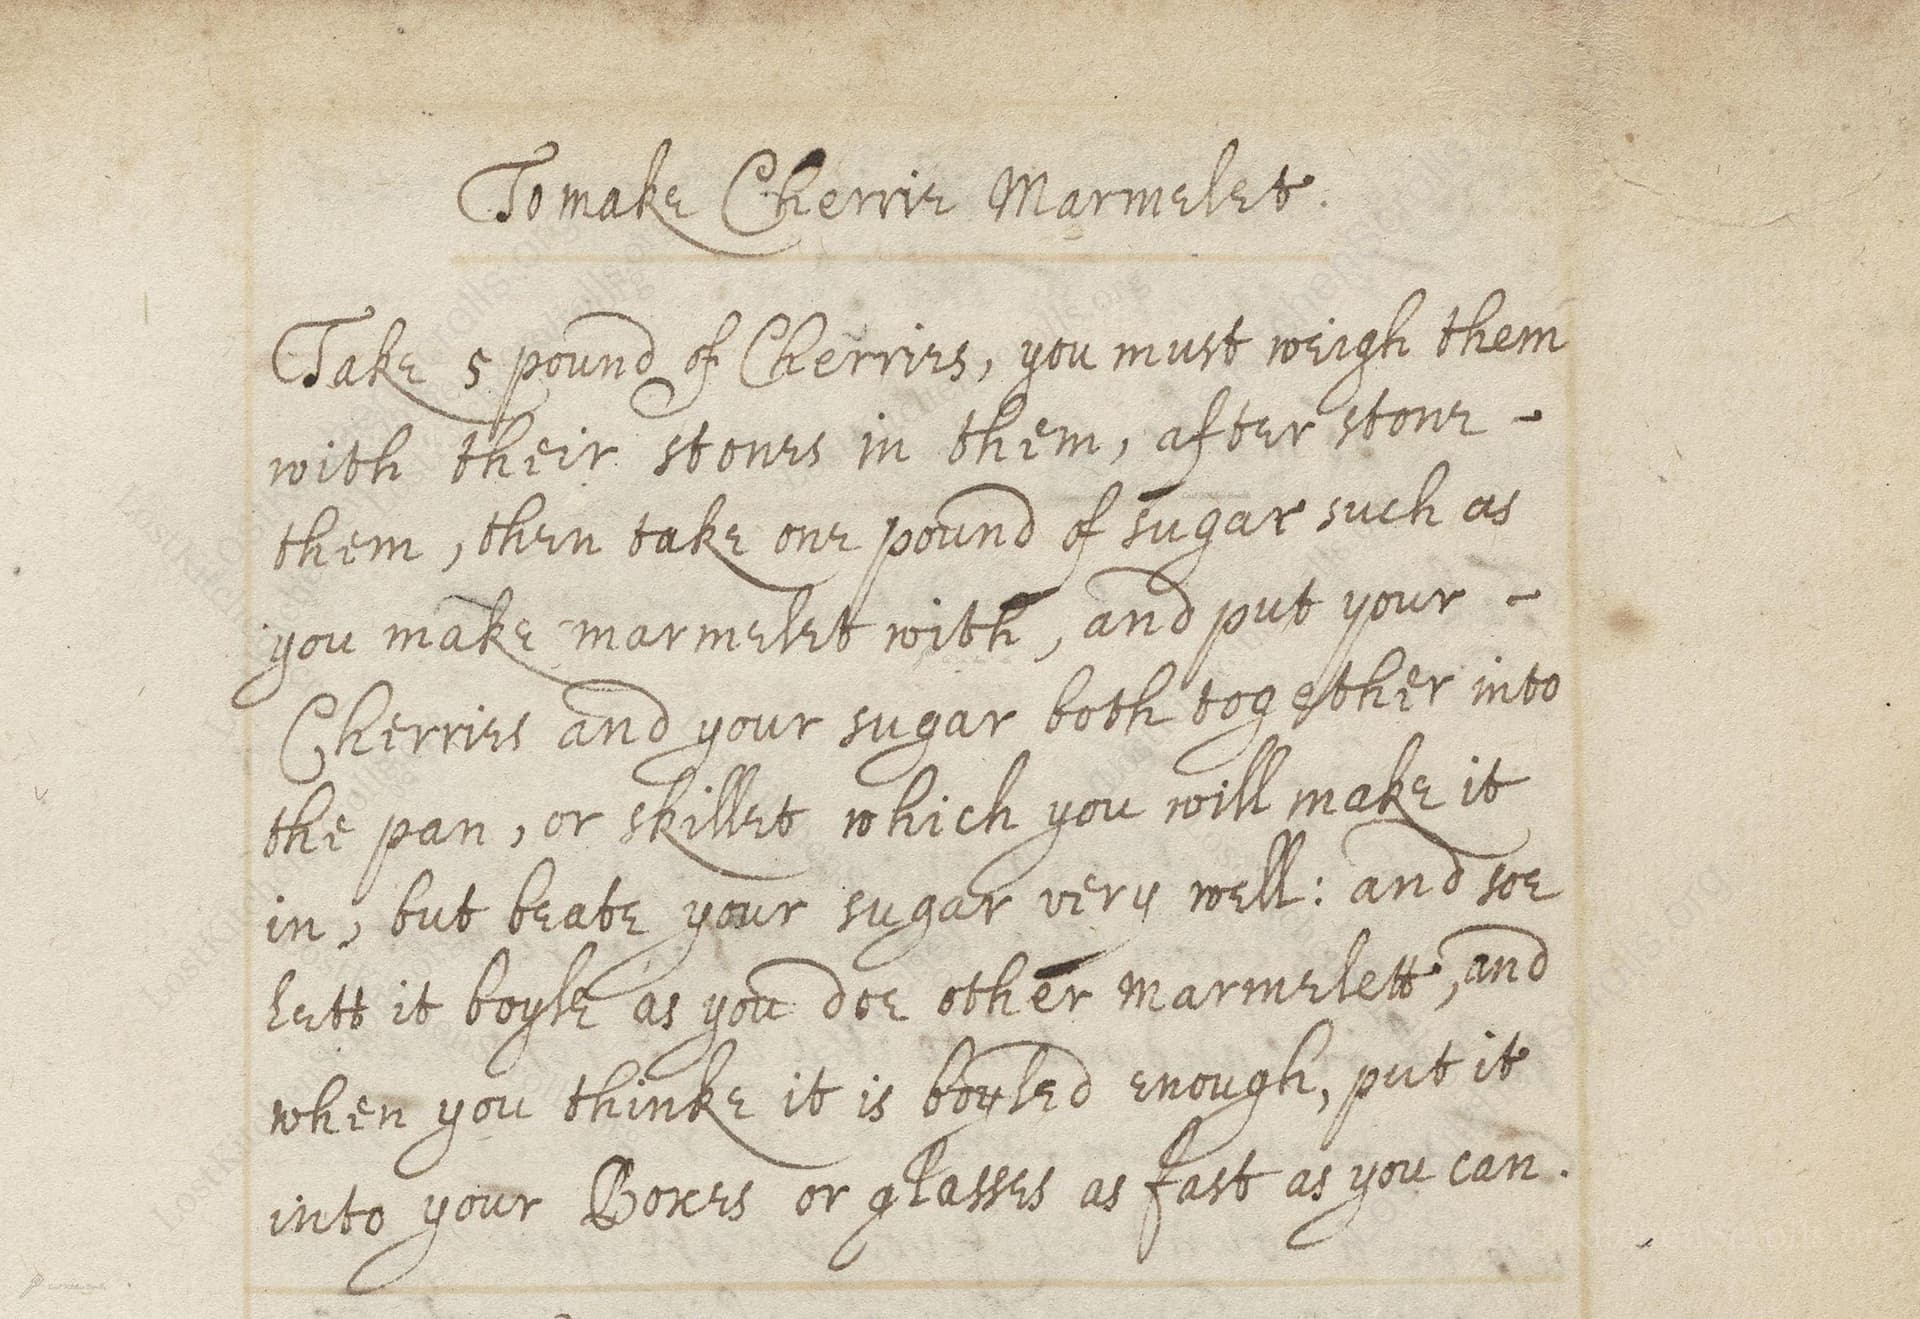 To make Cherrie Marmelet.
Take 5 pound of Cherries, you must weigh them
with their stones in them, after stone -
them, then take one pound of sugar such as
you make marmelet with, and put your -
Cherries and your sugar both together into
the pan, or skillet which you will make it
in, but beate your sugar very well: and soe
lett it boyle as you doe other marmelett, and
when you thinke it is boyled enough, put it
into your Boxes or glasses as fast as you can.